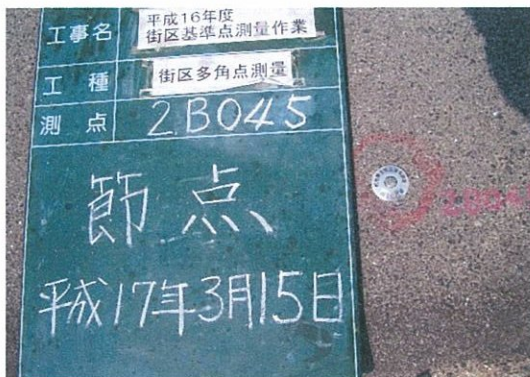 工事名 平成16年度
街区基準点測量作業
工種 街区多角点測量
測点 2B045
節点
平成17年3月15日